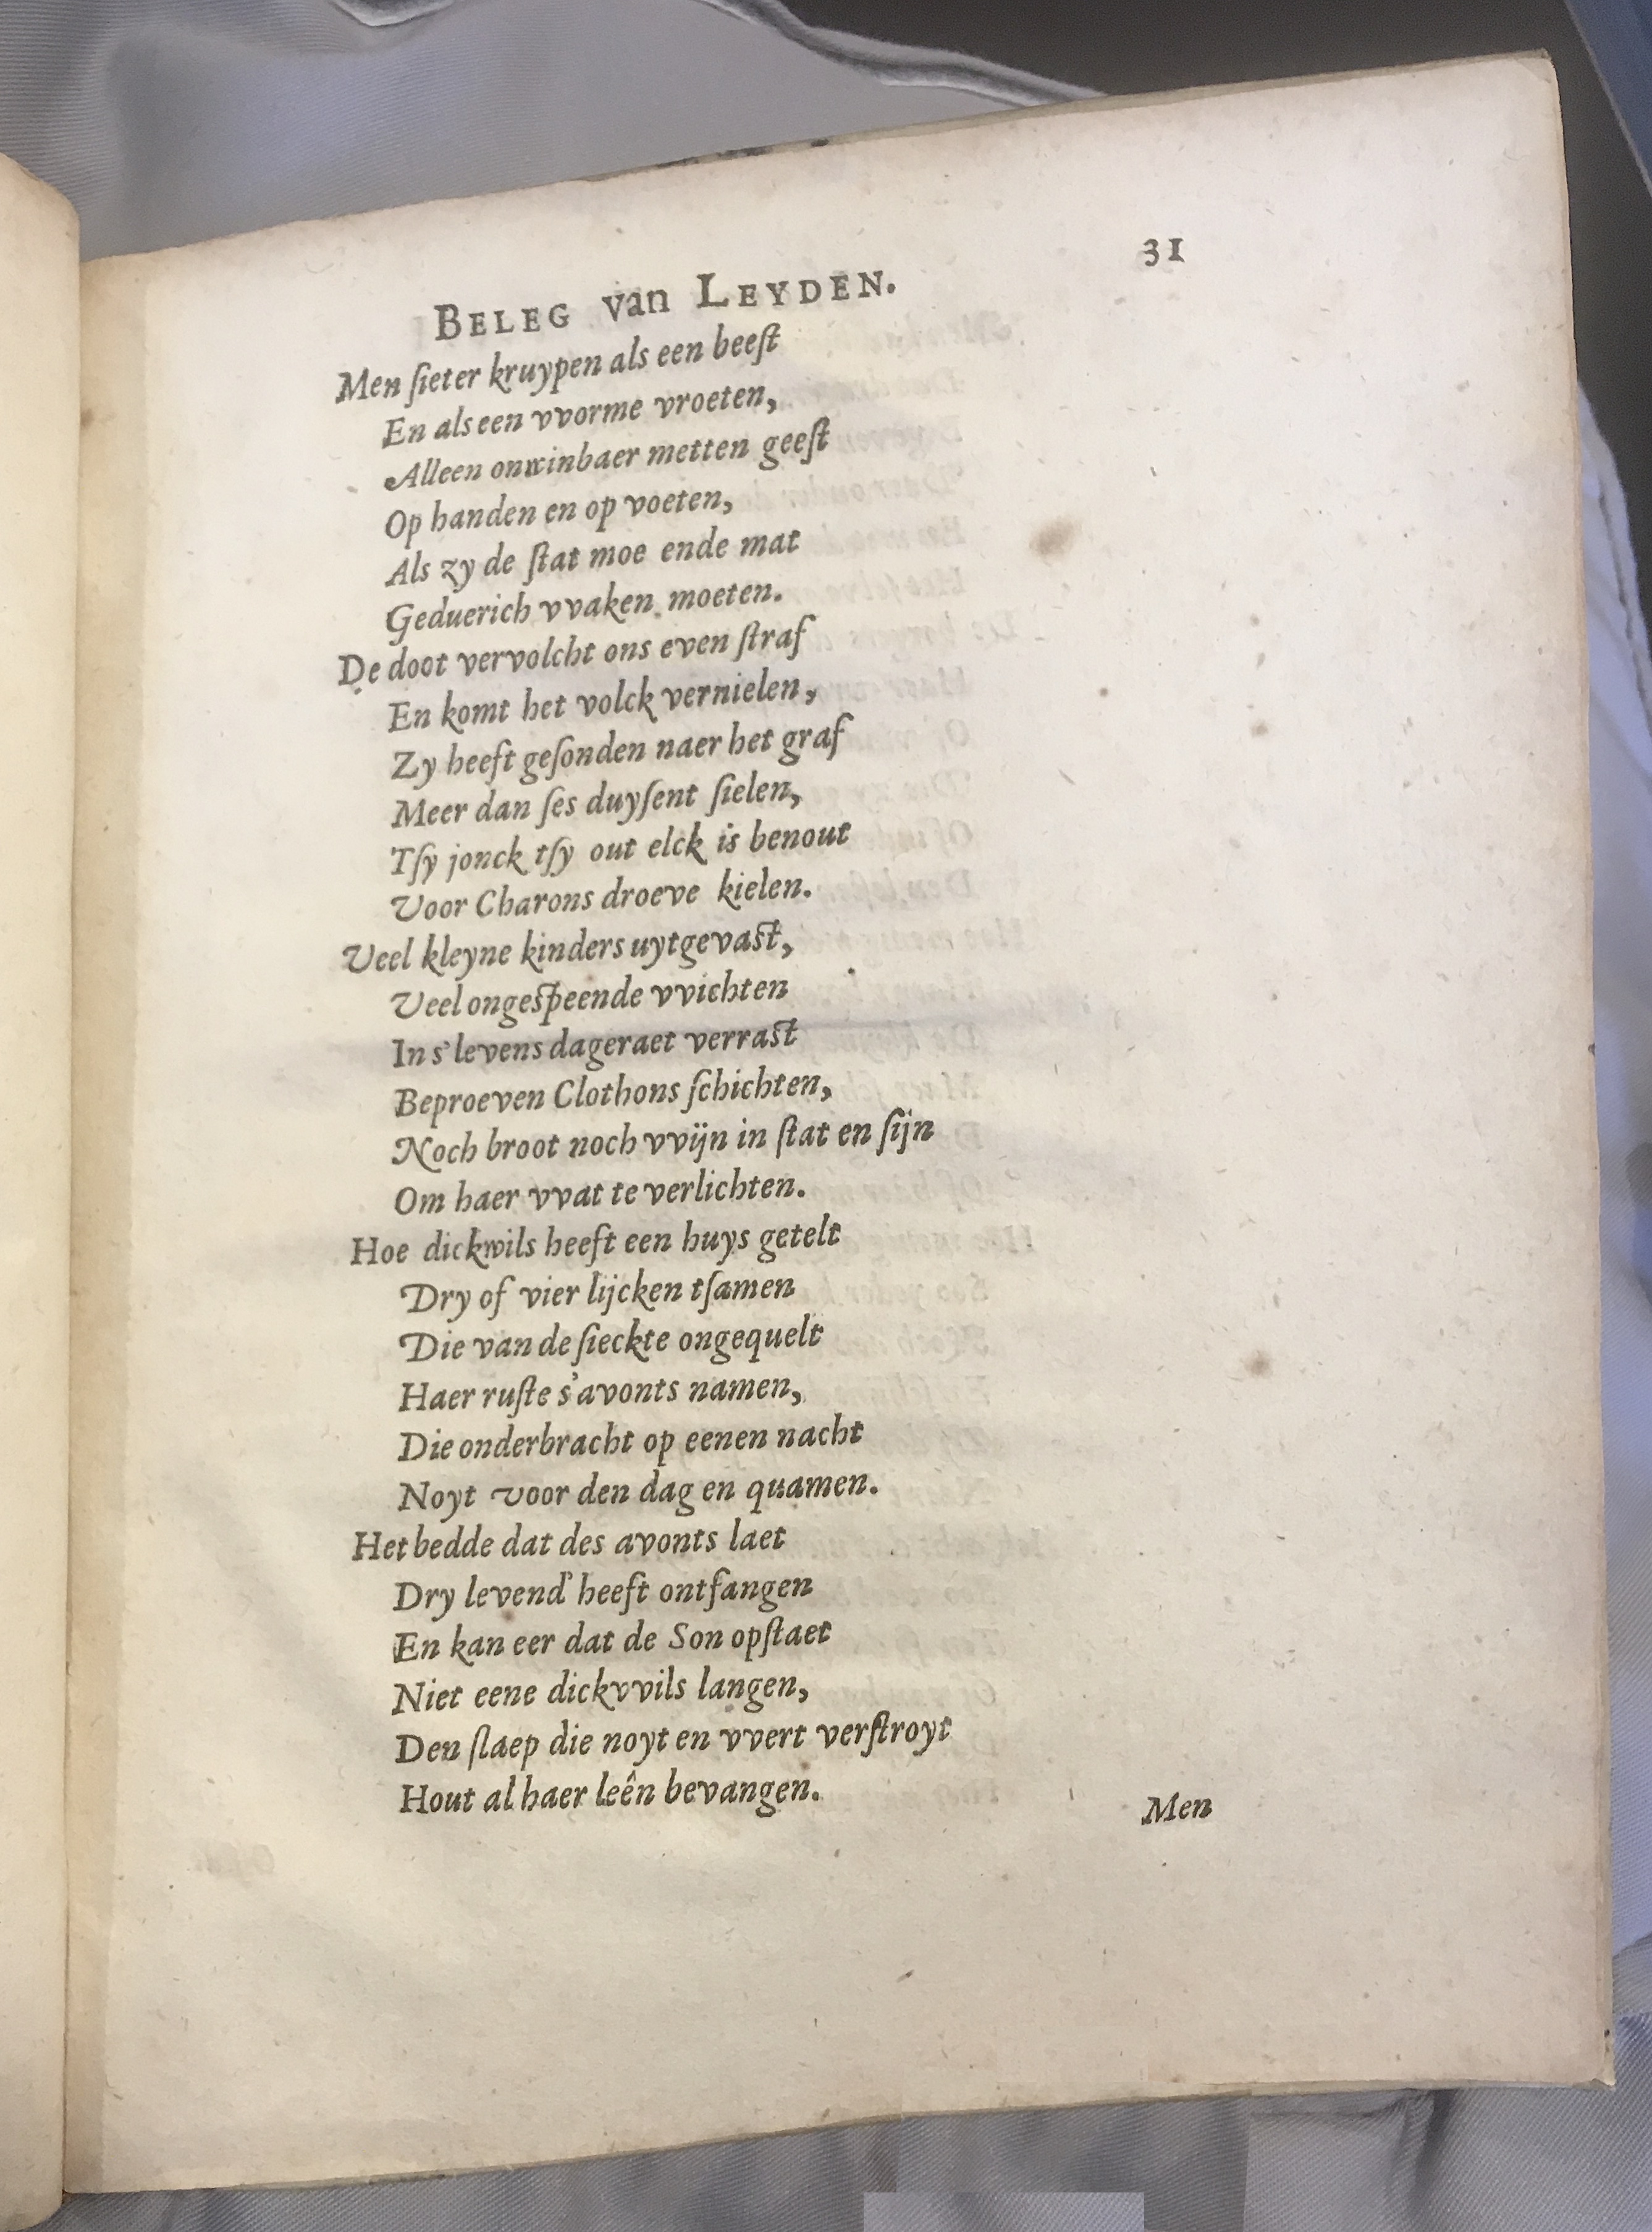 31
BELEG van LEYDEN.
Men ſieter kruypen als een beeſt
En als een vvorme vroeten,
Alleen onwinbaer metten geeſt
Op handen en op voeten,
Als zy de ſtat moe ende mat
Geduerich vvaken moeten.
De doot vervolcht ons even ſtraf
En komt het volck vernielen,
Zy heeft geſonden naer het graf
Meer dan ſes duyſent ſielen,
Tſy jonck tſy out elck is benout
Voor Charons droeve kielen.
Veel kleyne kinders uytgevaſt,
Veel ongeſpeende vvichten
In s'levens dageraet verraſt
Beproeven Clothons ſchichten,
Noch broot noch vvijn in ſtat en ſijn
Om haer vvat te verlichten.
Hoe dickwils heeft een huys getelt
Dry of vier lijcken tſamen
Die van de ſieckte ongequelt
Haer ruſte s'avonts namen,
Die onderbracht op eenen nacht
Noyt voor den dag en quamen.
Het bedde dat des avonts laet
Dry levend' heeft ontfangen
En kan eer dat de Son opſtaet
Niet eene dickvvils langen,
Den ſlaep die noyt en vvert verſtroyt
Hout al haer leên bevangen.
Men